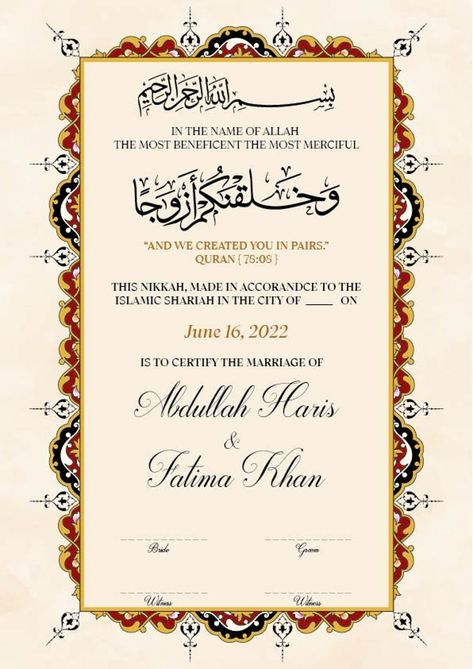 بِسْمِ اللهِ الرَّحْمٰنِ الرَّحِيْمِ
IN THE NAME OF ALLAH
THE MOST BENEFICENT THE MOST MERCIFUL
وَخَلَقْنَكُمْ أَزْوَجًا
“AND WE CREATED YOU IN PAIRS.”
QURAN { 78:08 }
THIS NIKKAH, MADE IN ACCORANDCE TO THE
ISLAMIC SHARIAH IN THE CITY OF ____ ON
June 16, 2022
IS TO CERTIFY THE MARRIAGE OF
Abdullah Haris
&
Fatima Khan
Bride Groom
Witness Witness